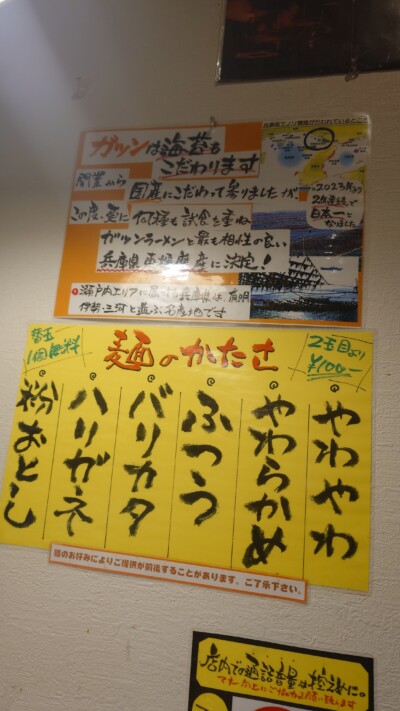 ガツンは海苔も
こだわります
開業から
国産にこだわって参りましたが
この度、更に何種も試食を重ね
ガツンラーメンと最も相性の良い
兵庫県
産に決定!
2023年より
2年連続で
日本一と
なりました
瀬戸内エリアに
兵庫県は、有明
伊勢、三河と並ぶ名産地です
替玉
1個無料
麺のかたさ
2玉目より
¥100-
やわやわ
やわらかめ
ふつう
バリカタ
ハリガネ
粉おとし
麺のお好みによりご提供が前後することがあります。ご了承下さい。
店内での通話音量は控えめに。